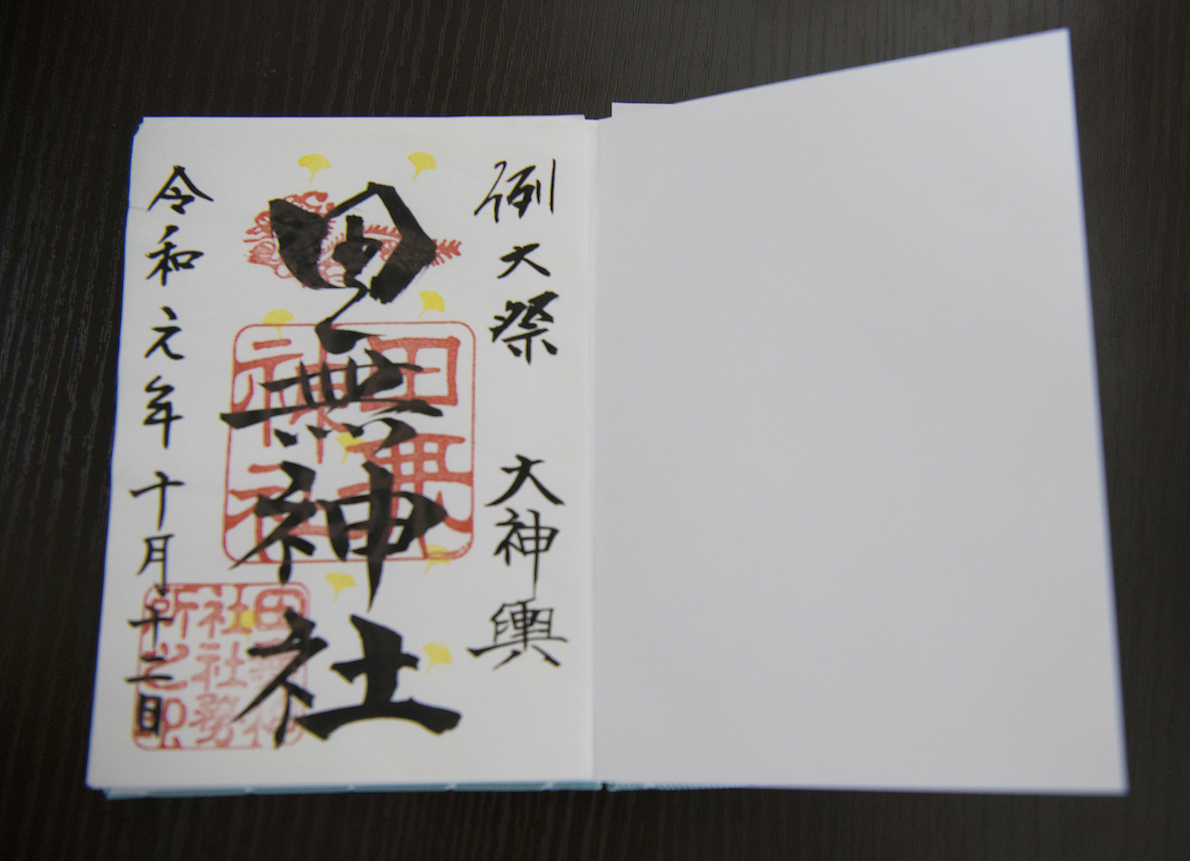 例大祭 大神輿
田無神社
令和元年十月十二日
田無神社
田無神社社務所之印